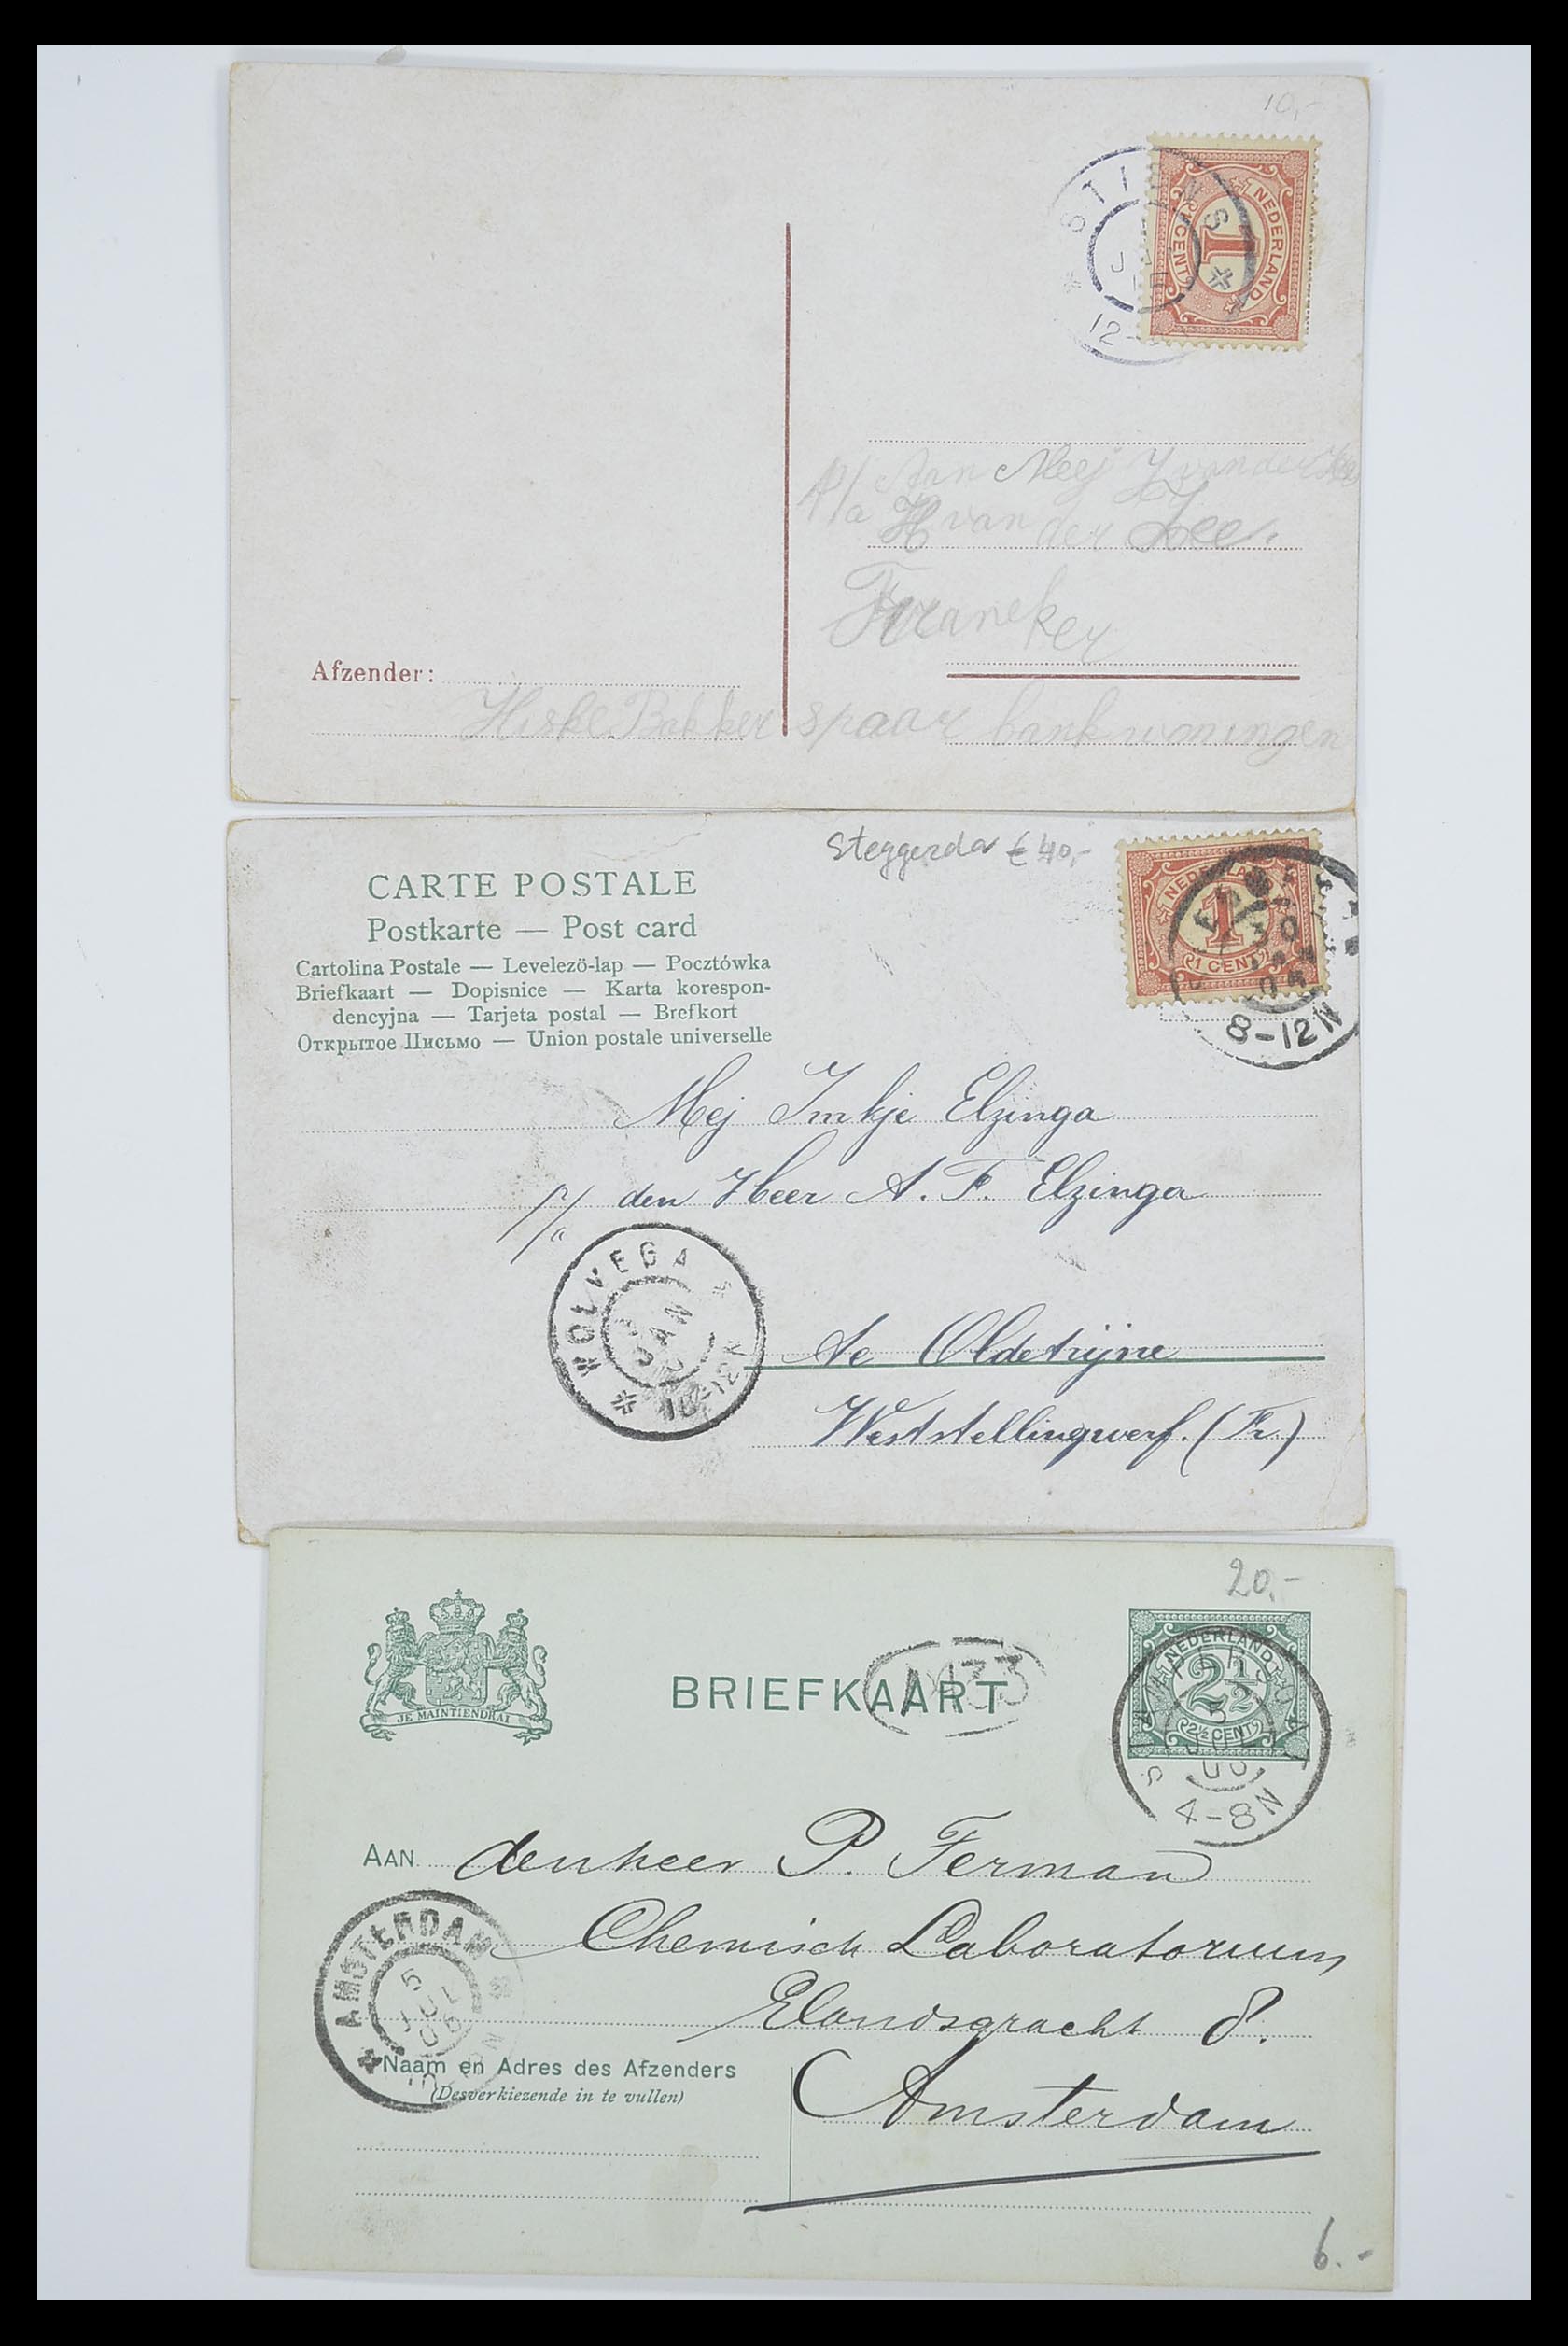 10,-
STIENS
12-
NEDERLAND
1
CENT
Aan Mej Y van der Zee
p/a H van der Zee.
Franeker
Afzender:
Hiske Bakker spaarbankwoningen
Steggerda € 40,-
CARTE POSTALE
Postkarte — Post card
Cartolina Postale — Levelezö-lap — Pocztówka
Briefkaart — Dopisnice — Karta korespon-
dencyjna — Tarjeta postal — Brefkort
Открытое Письмо — Union postale universelle
NEDERLAND
1
1 CENT
30
8-12N
Mej Imkje Elzinga
p/a den Heer A. F. Elzinga
WOLVEGA
JAN
10-12V
te Oldetrijne
Weststellingwerf. (Fr.)
20,-
JE MAINTIENDRAI
BRIEFKAART
33
NEDERLAND
2½
2½ CENT
5
JUL
06
4-8N
AAN denheer P. Ferman
Chemisch Laboratorium
Elandsgracht 8.
Amsterdam
AMSTERDAM
5
JUL
06
Naam en Adres des Afzenders
(Desverkiezende in te vullen)
6.-